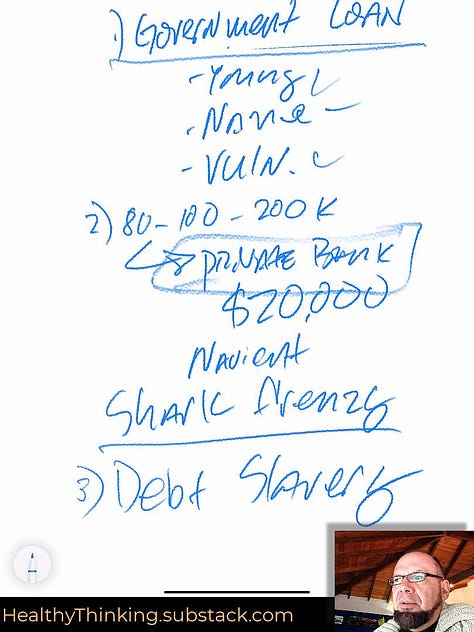 1) Government Loan
- Young
- Naive
- Vuln.
2) 80-100-200K
Private Bank
$20,000
Navient
Shark frenzy
3) Debt Slavery
HealthyThinking.substack.com